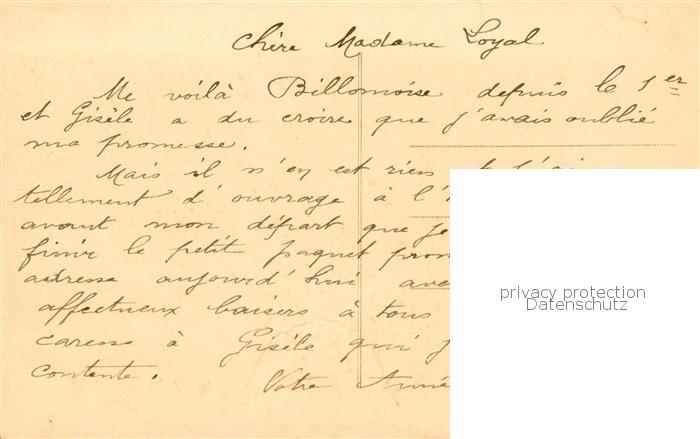 Chère Madame Loyal
Me voilà Billomoise depuis le 1er
et Gisèle a du croire que j'avais oublié
ma promesse.
Mais il n'en est rien
tellement d'ouvrage à
avant mon départ que je
finir le petit paquet
adresse aujourd'hui
affectueux baisers à tous
caresse à Gisèle qui
contente.
Votre
privacy protection
Datenschutz